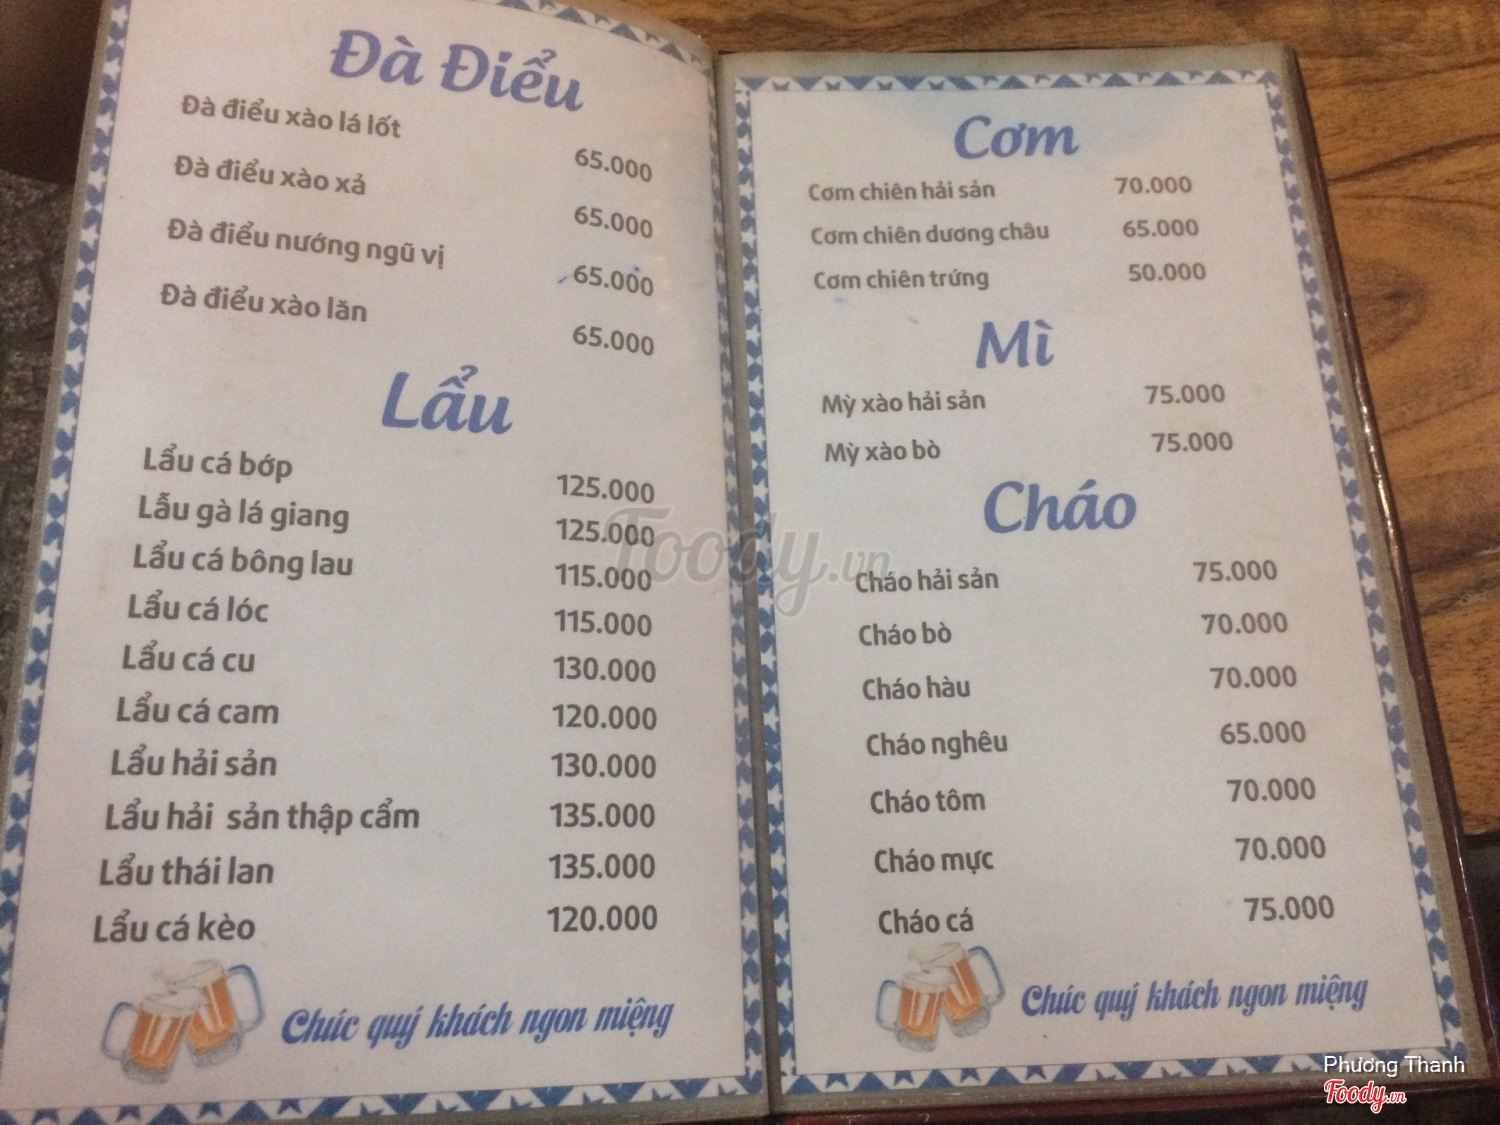 Đà Điểu
Đà điểu xào lá lốt 65.000
Đà điểu xào xả 65.000
Đà điểu nướng ngũ vị 65.000
Đà điểu xào lăn 65.000
Lẩu
Lẩu cá bớp 125.000
Lẫu gà lá giang 125.000
Lẩu cá bông lau 115.000
Lẩu cá lóc 115.000
Lẩu cá cu 130.000
Lẩu cá cam 120.000
Lẩu hải sản 130.000
Lẩu hải sản thập cẩm 135.000
Lẩu thái lan 135.000
Lẩu cá kèo 120.000
Chúc quý khách ngon miệng
Cơm
Cơm chiên hải sản 70.000
Cơm chiên dương châu 65.000
Cơm chiên trứng 50.000
Mì
Mỳ xào hải sản 75.000
Mỳ xào bò 75.000
Cháo
Cháo hải sản 75.000
Cháo bò 70.000
Cháo hàu 70.000
Cháo nghêu 65.000
Cháo tôm 70.000
Cháo mực 70.000
Cháo cá 75.000
Chúc quý khách ngon miệng
Foody.vn
Phương Thanh
Foody.vn